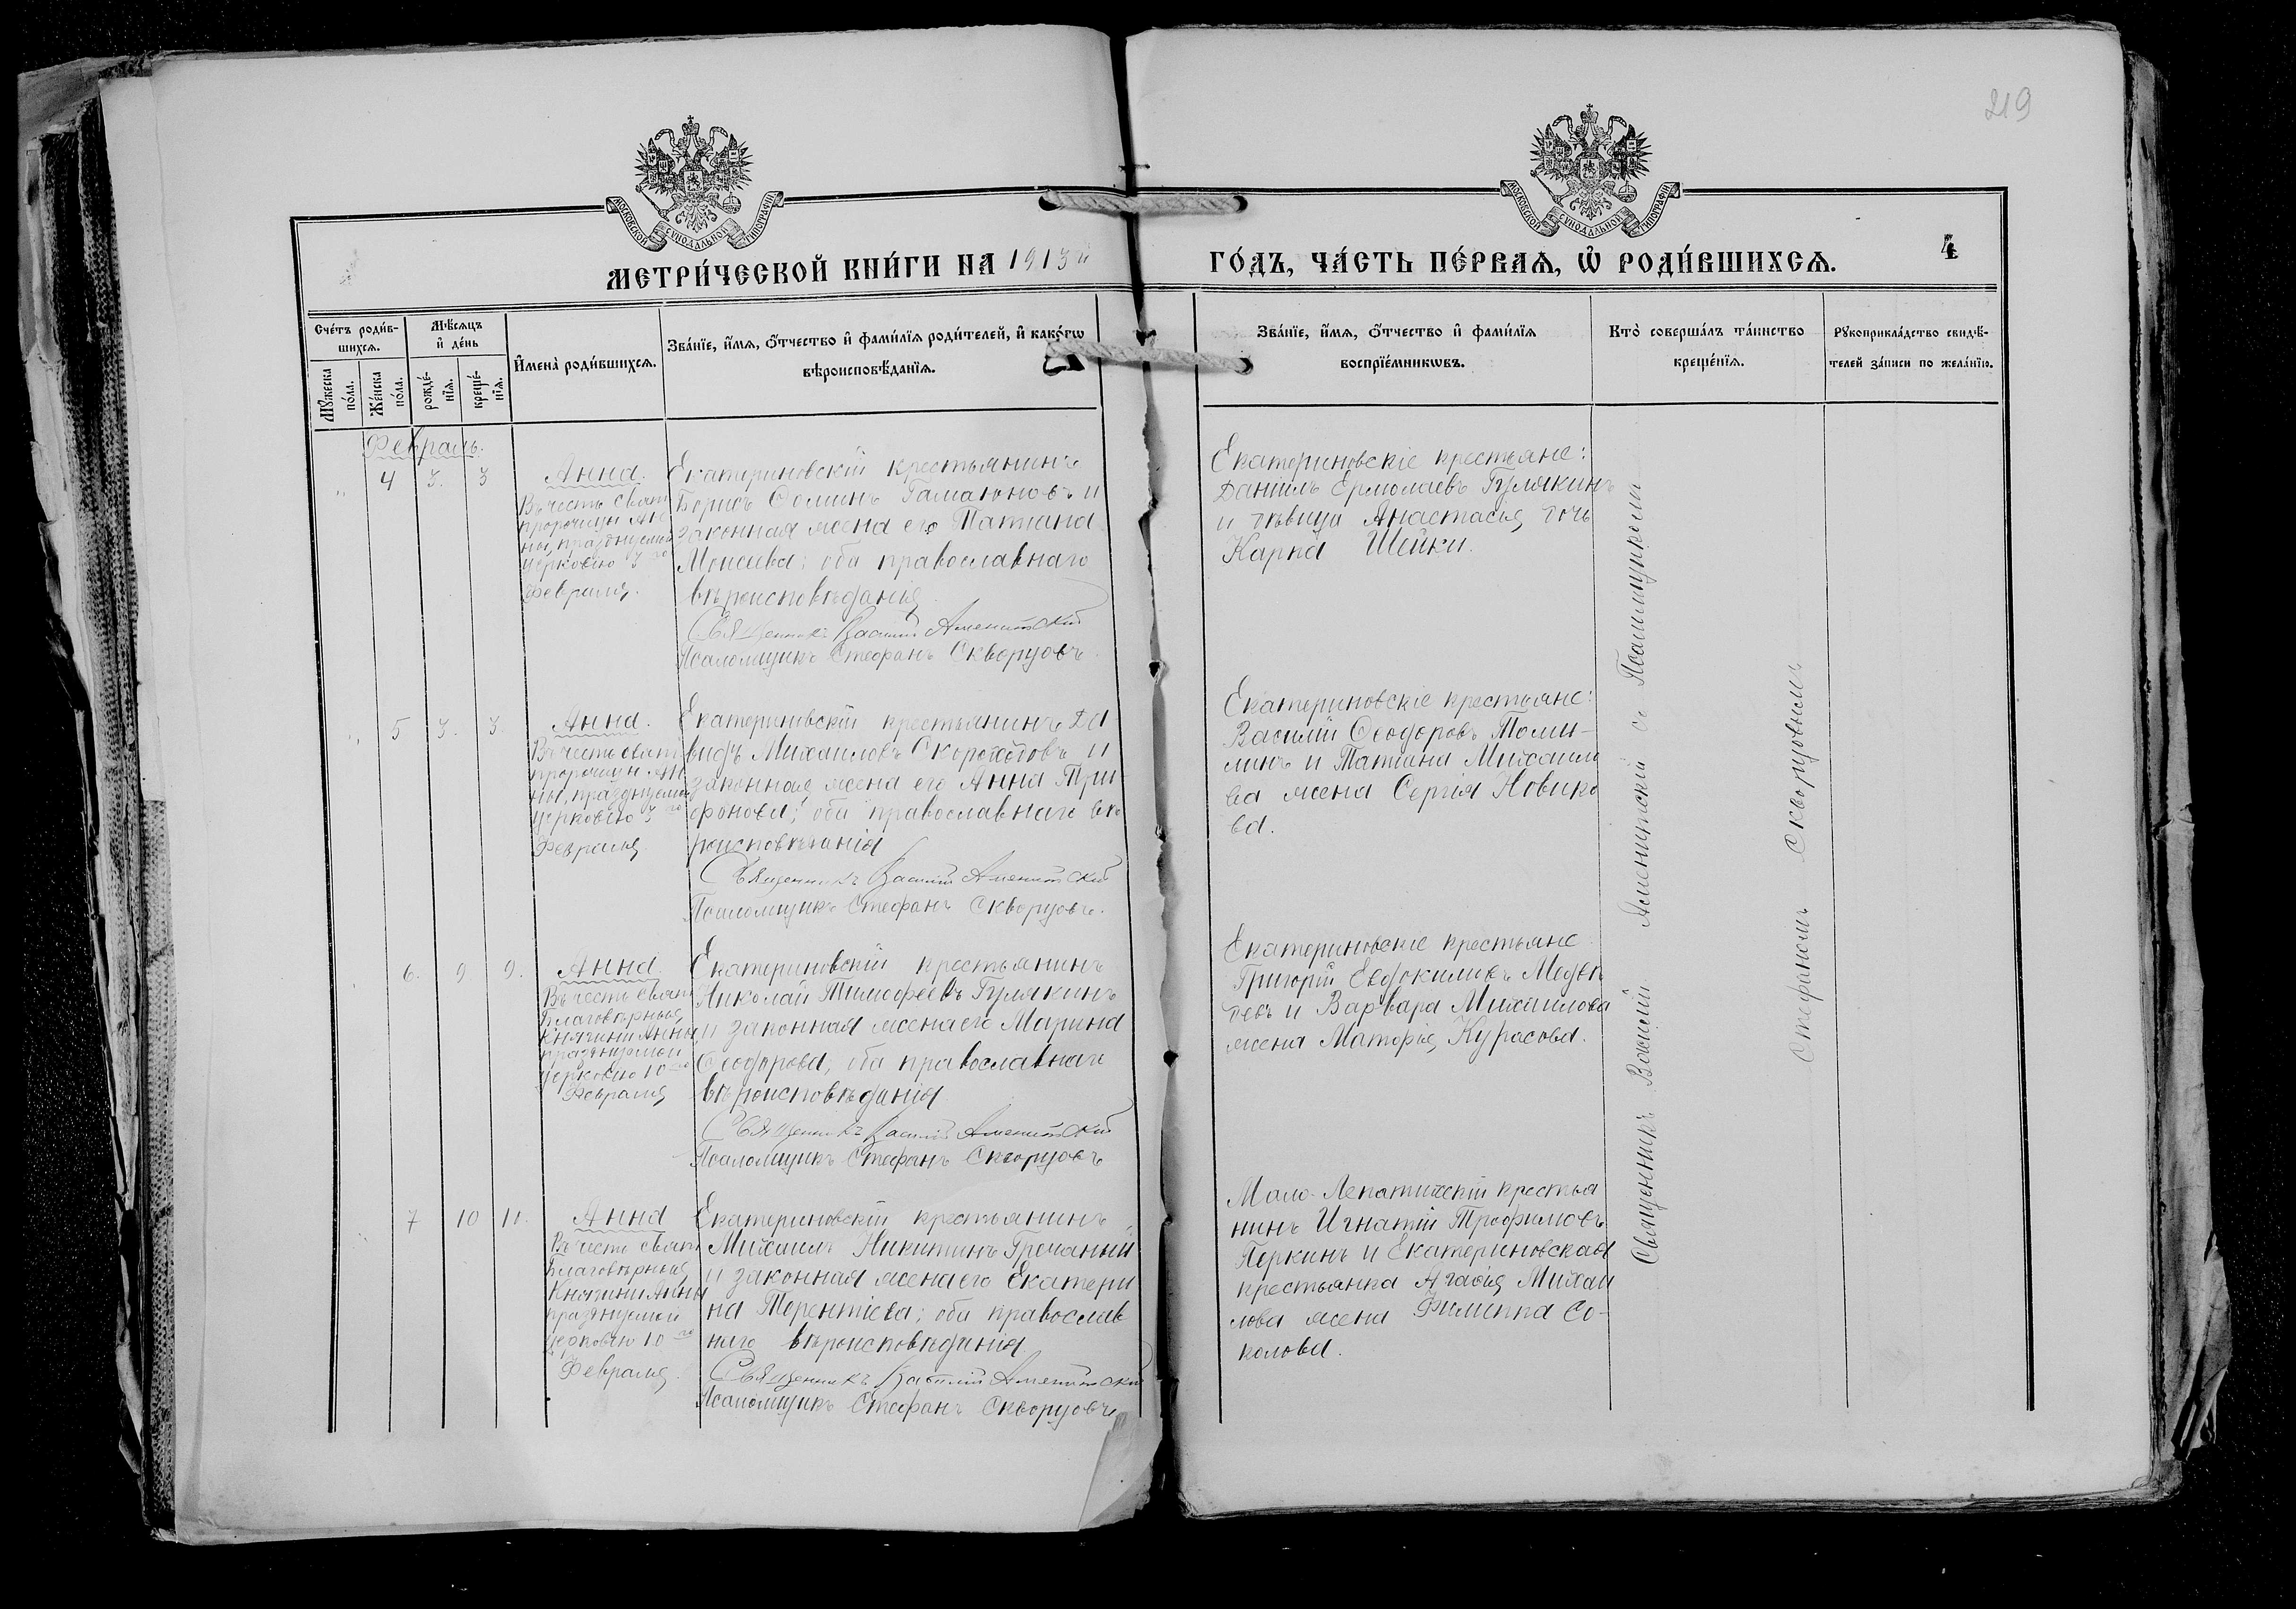 219
МОСКОВСКОЙ СѴНОДАЛЬНОЙ ТИПОГРАФІИ
МОСКОВСКОЙ СѴНОДАЛЬНОЙ ТИПОГРАФІИ
МЕТРИ́ЧЕСКОЙ КНИ́ГИ НА 1913й
ГО́ДЪ, ЧА́СТЬ ПЕ́РВАѦ, Ѡ РОДИ́ВШИХСѦ.
4
Сче́тъ роди́в-
шихсѧ.
Мѣ́сѧцъ
и҆ де́нь
Мꙋ́жеска
по́ла.
Же́нска
по́ла.
рожде́-
нїѧ.
креще́-
нїѧ.
И҆мена̀ роди́вшихсѧ.
Зва́нїе, и҆́мѧ, ѻ҆́тчество и҆ фами́лїѧ роди́телей, и҆ како́гѡ
вѣроисповѣ́данїѧ.
Зва́нїе, и҆́мѧ, ѻ҆́тчество и҆ фами́лїѧ
воспрїе́мникѡвъ.
Кто̀ соверша́лъ та́инство
креще́нїѧ.
Рꙋкоприкла́дство свидѣ́-
телей за́писи по жела́нїю.
Февраль.
4 3. 3
Анна.
Въ честь свят
пророчицы Ан
ны, празднуемой
церковію 3го
Февраля.
Екатериновскій крестьянинъ
Борисъ Ѳоминъ Гамаюновъ и
законная жена его Татиана
Моисеева; оба православнаго
вѣроисповѣданія
Священникъ Василій Аменитскій
Псаломщикъ Стефанъ Скворцовъ.
Екатериновскіе крестьяне:
Даніилъ Ермолаевъ Гулякинъ
и дѣвица Анастасія, дочь
Карпа Шейки.
5 3. 3
Анна.
Въ честь свят
пророчицы Ан
ны, празднуемой
церковію 3го
Февраля
Екатериновскій крестьянинъ Да
видъ Михаиловъ Скороходовъ и
законная жена его Анна Три
фонова; оба православнаго вѣ
роисповѣданія
Священникъ Василій Аменитскій
Псаломщикъ Стефанъ Скворцовъ.
Екатериновскіе крестьяне:
Василій Ѳеодоровъ Томи-
линъ и Татіана Михаило
ва жена Сергія Новико
ва.
6. 9 9.
Анна.
Въ честь свят
Благовѣрныя
Княгини Анны,
празднуемой
церковію 10го
Февраля
Екатериновскій крестьянинъ
Николай Тимофеевъ Гулякинъ
и законная жена его Марина
Ѳеодорова, оба православнаго
вѣроисповѣданія
Священникъ Василій Аменитскій
Псаломщикъ Стефанъ Скворцовъ
Екатериновскіе крестьяне
Григорій Евдокимовъ Медвѣ
девъ и Варвара Михаилова
жена Матфія Курасова.
7 10 10.
Анна
Въ честь свят
Благовѣрныя
Княгини Анны
празднуемой
церковію 10го
Февраля.
Екатериновскій крестьянинъ
Михаилъ Никитинъ Гречаный
и законная жена его Екатери
на Терентіева; оба православ
наго вѣроисповѣданія.
Священникъ Василій Аменитскій
Псаломщикъ Стефанъ Скворцовъ
Мало-Лепатихскій крестья
нинъ Игнатій Трофимовъ
Перкинъ и Екатериновская
крестьянка Агафія Михаи
лова жена Филиппа Со-
колова.
Священникъ Василій Аменитскій съ Псаломщикомъ
Стефаномъ Скворцовымъ